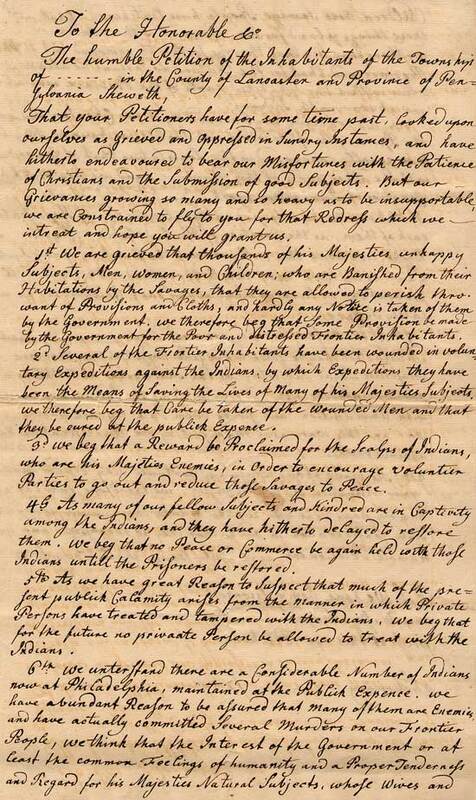 To the Honorable &c.
The humble Petition of the Inhabitants of the Townships
of - - - - - - - - in the County of Lancaster and Province of Pen=
sylvania Sheweth,
That your Petitioners have for some time past, looked upon
ourselves as Grieved and oppressed in Sundry Instances, and have
hitherto endeavoured to bear our Misfortunes with the Patience
of Christians and the Submission of good Subjects. But our
Grievances growing so many and so heavy as to be insupportable
we are Constrained to fly to you for that Redress which we
intreat and hope you will grant us.
1st We are grieved that thousands of his Majesties unhappy
Subjects, Men, Women, and Children; who are Banished from their
Habitations by the Savages, that they are allowed to perish thro
want of Provisions and Cloths, and hardly any Notice is taken of them
by the Government. we therefore beg that Some Provision be made
by the Government for the Poor and distressed Frontier Inhabitants.
2d Several of the Frontier Inhabitants have been wounded in volun
tary Expeditions against the Indians. by which Expeditions they have
been the Means of Saving the Lives of Many of his Majesties Subjects,
we therefore beg that Care be taken of the wounded Men and that
they be cured at the publick Expence.
3d we beg that a Reward be Proclaimed for the Scalps of Indians,
who are his Majeties Enemies, in Order to encourage voluntier
Parties to go out and reduce those Savages to Peace.
4ly As many of our fellow Subjects and Kindred are in Captivity
among the Indians, and they have hitherto delayed to restore
them. We beg that no Peace or Commerce be again held with those
Indians untill the Prisoners be restored.
5th As we have great Reason to Suspect that much of the pre=
sent publick Calamity arises from the manner in which Private
Persons have treated and tampered with the Indians. We beg that
for the future no privaate Person be allowed to treat with the
Indians.
6th we understand there are a Considerable Number of Indians
now at Philadelphia, maintained at the Publick Expence. we
have abundant Reason to be assured that many of them are Enemies
and have actually committed Several Murders on our Frontier
People, we think that the Interest of the Government or at
least the common Feelings of humanity and a Proper Tenderness
and Regard for his Majesties Natural Subjects, whose Wives and